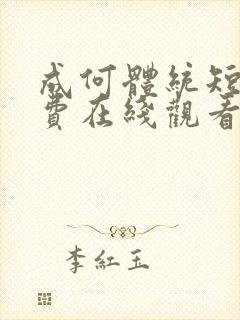 成何體統短
費在綫觀看
李紅玉